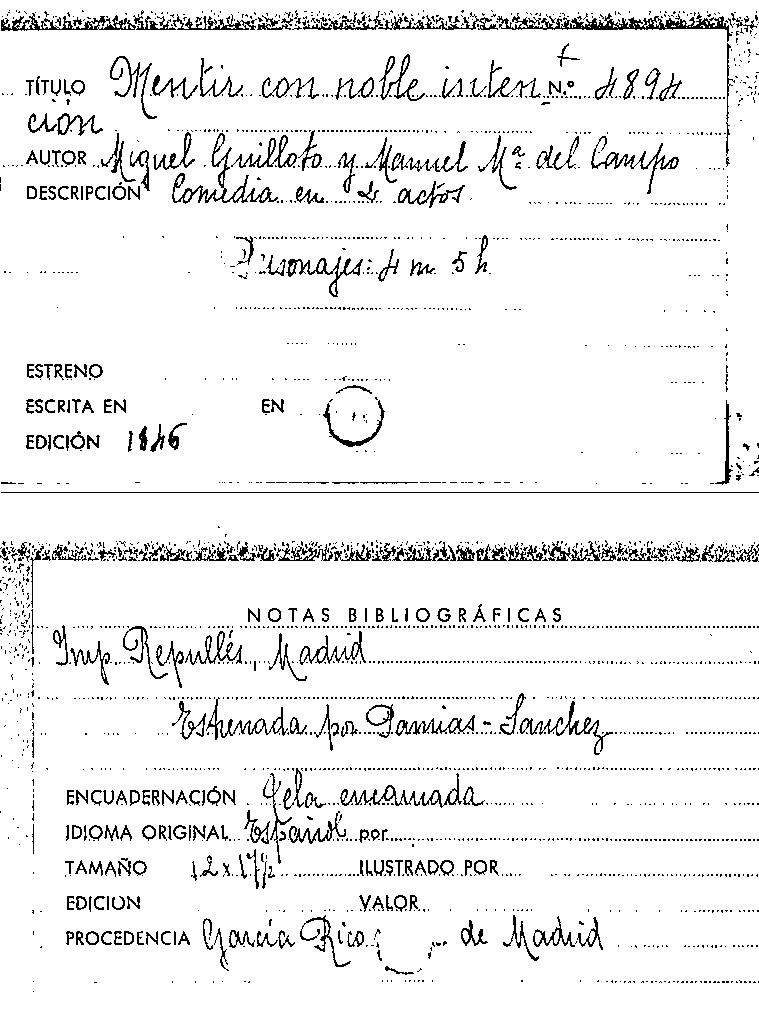 TÍTULO Mentir con noble inten N.º 4894
ción
AUTOR Miguel Guilloto y Manuel Mª del Campo
DESCRIPCIÓN Comedia en actos
Personajes: 4 m 5 h
ESTRENO
ESCRITA EN EN
EDICIÓN 1846
NOTAS BIBLIOGRÁFICAS
Imp. Repullés, Madrid
Estrenada por Damias-Sanchez
ENCUADERNACIÓN Tela encarnada
IDIOMA ORIGINAL Español por
TAMAÑO 12 x 17½ ILUSTRADO POR
EDICION VALOR
PROCEDENCIA García Rico de Madrid